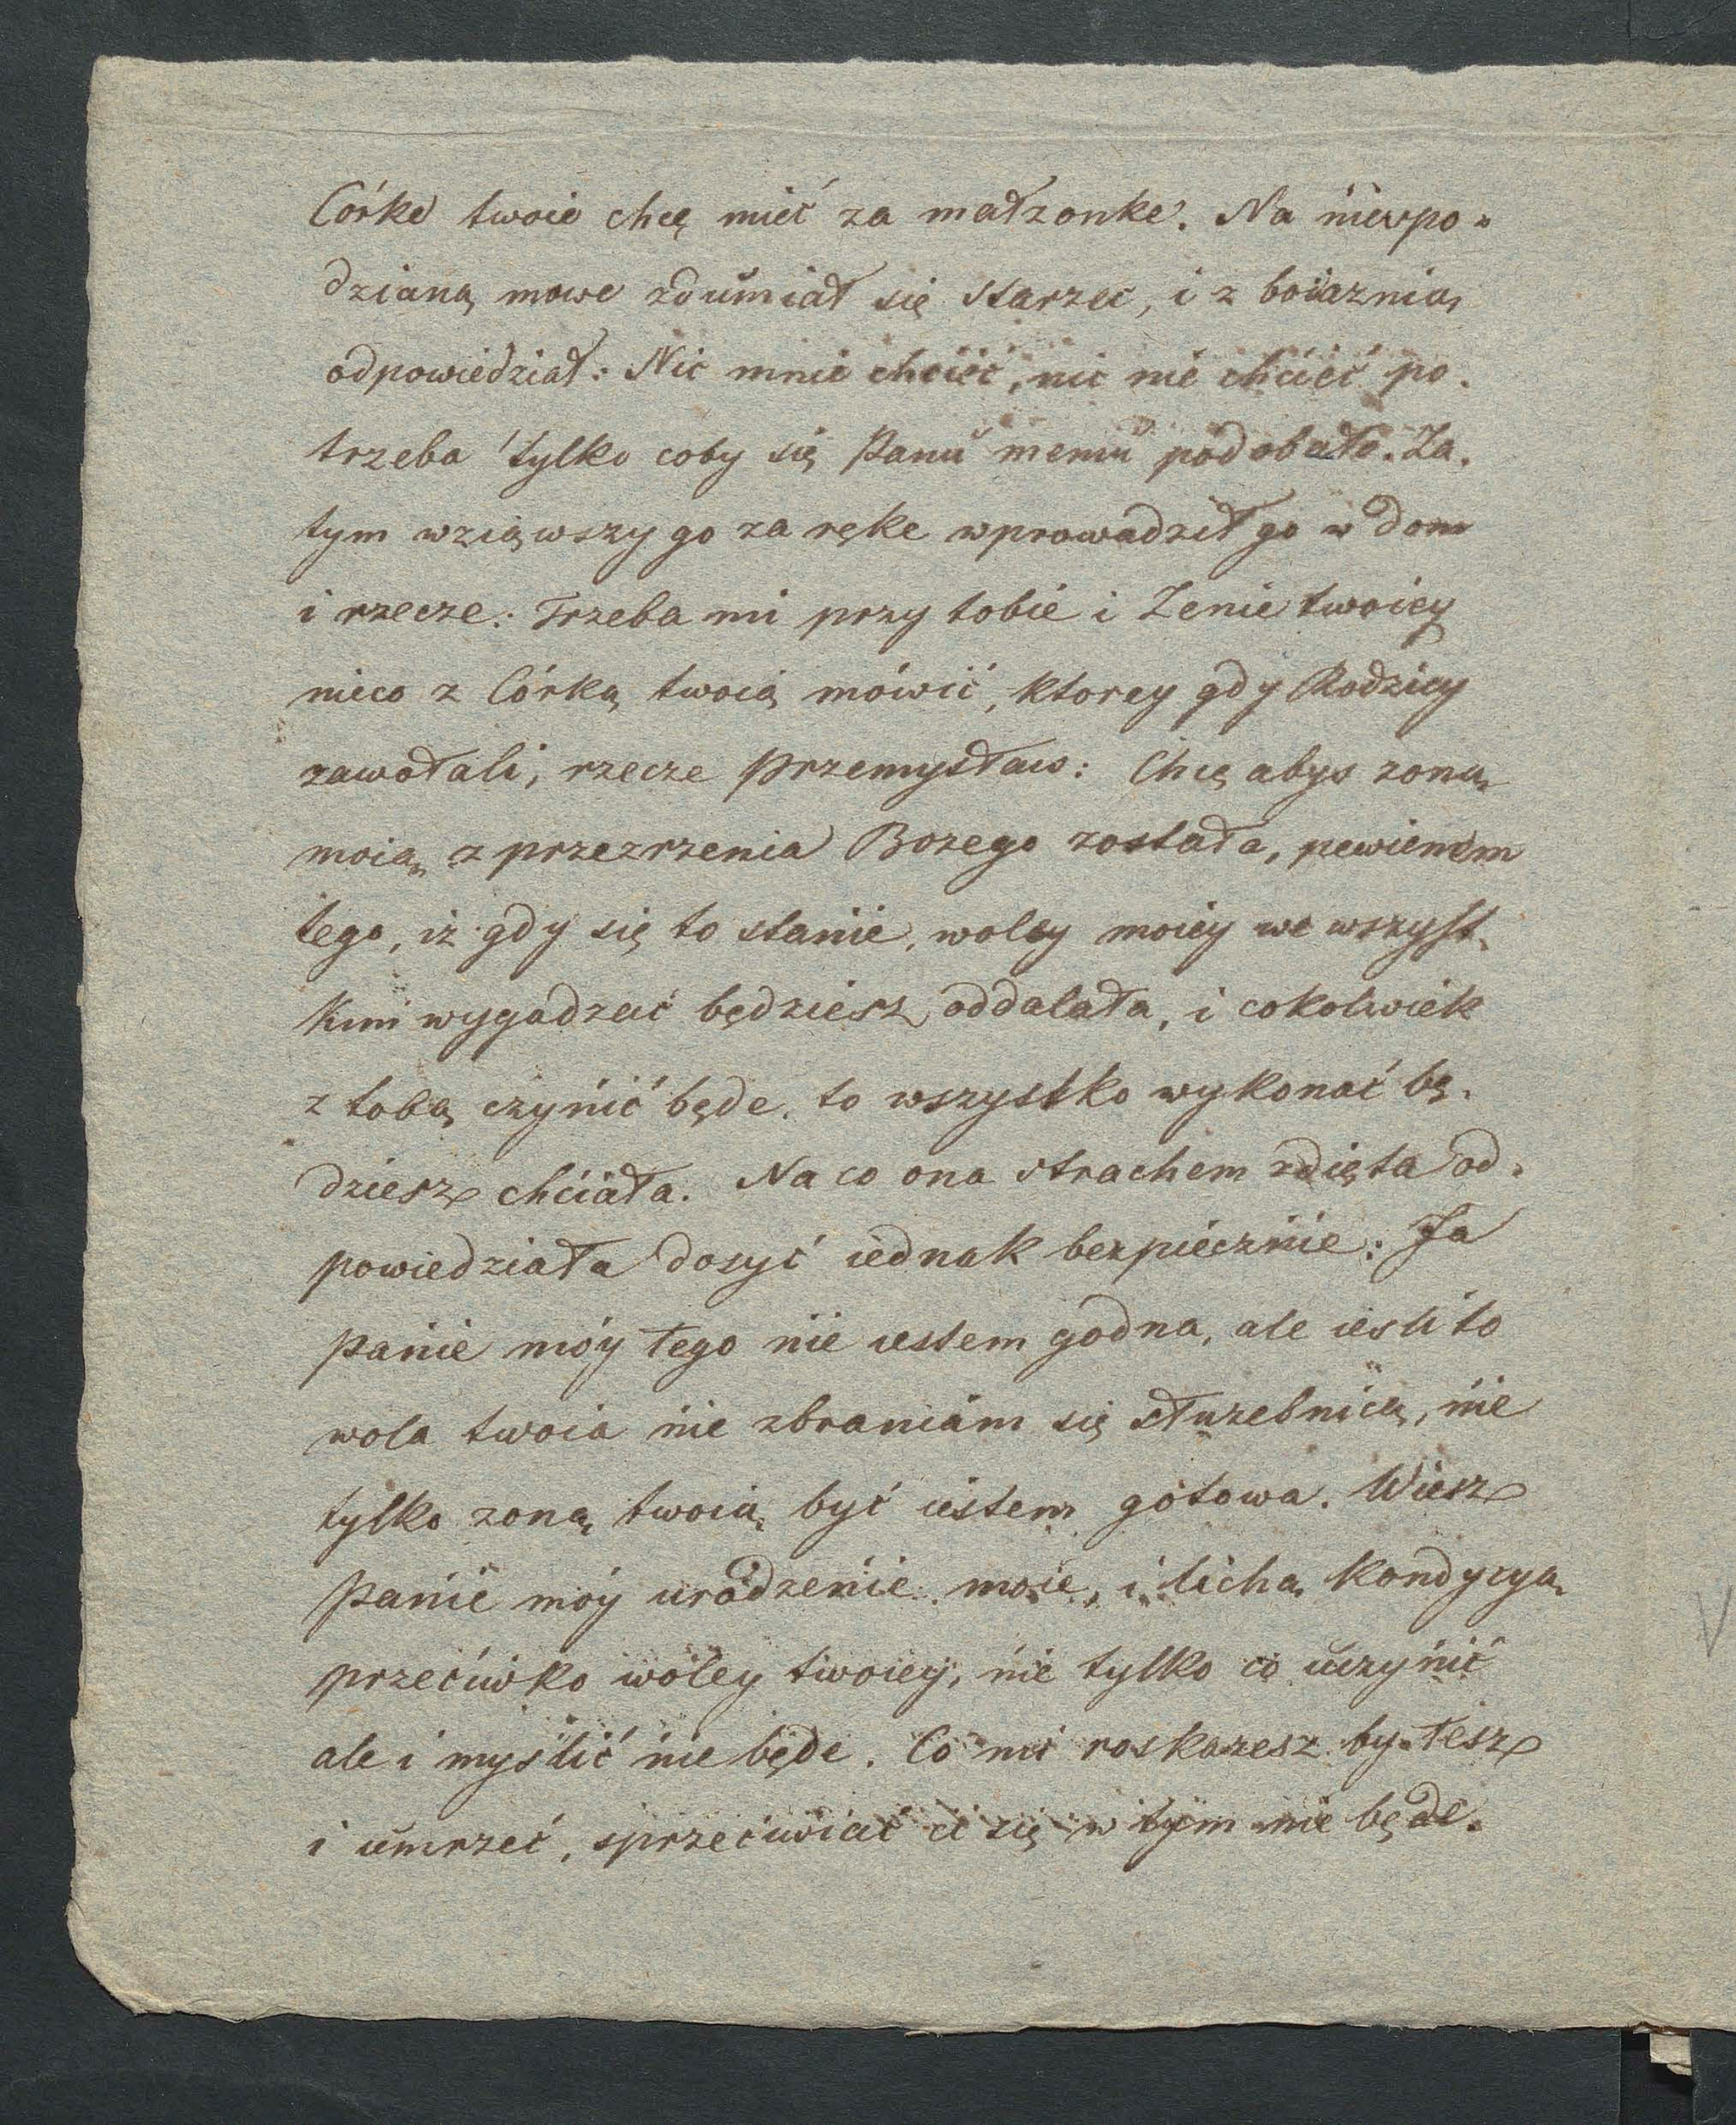 Córke twoie chcę mieć za małzonke. Na niespo=
dzianą mowe zdumiał się starzec, i z boiaznią
odpowiedział: Nic mnie chcieć, nic nie chcieć po=
trzeba tylko coby się Panu memu podobało. Za=
tym wziąwszy go za ręke wprowadził go w dom
i rzecze: Trzeba mi przy tobie i Zenie twoiey
nieco z Córką twoią mówić, ktorey gdy Rodzicy
zawołali, rzecze Przemysław: Chcę abys zoną
moią z przezrzenia Bozego została, pewienem
tego, iz gdy się to stanie, woley moiey we wszyst=
kim wygadzać będziesz oddalała, i cokolwiek
z tobą czynić będe, to wszystko wykonać bę=
dziesz chciała. Na co ona strachem zdięta od=
powiedziała dosyć iednak bezpiecznie: Ja
panie móy tego nie iestem godna, ale iesli to
wola twoia nie zbraniam się słuzebnicą, nie
tylko zoną twoią być iestem gotowa. Wiesz
Panie móy urodzenie moie, i lichą kondycyą
przeciwko woley twoiey, nie tylko co uczynić
ale i myslić nie będe. Co mi roskazesz by tesz
i umrzeć, sprzeciwiać ci się w tym nie będe.